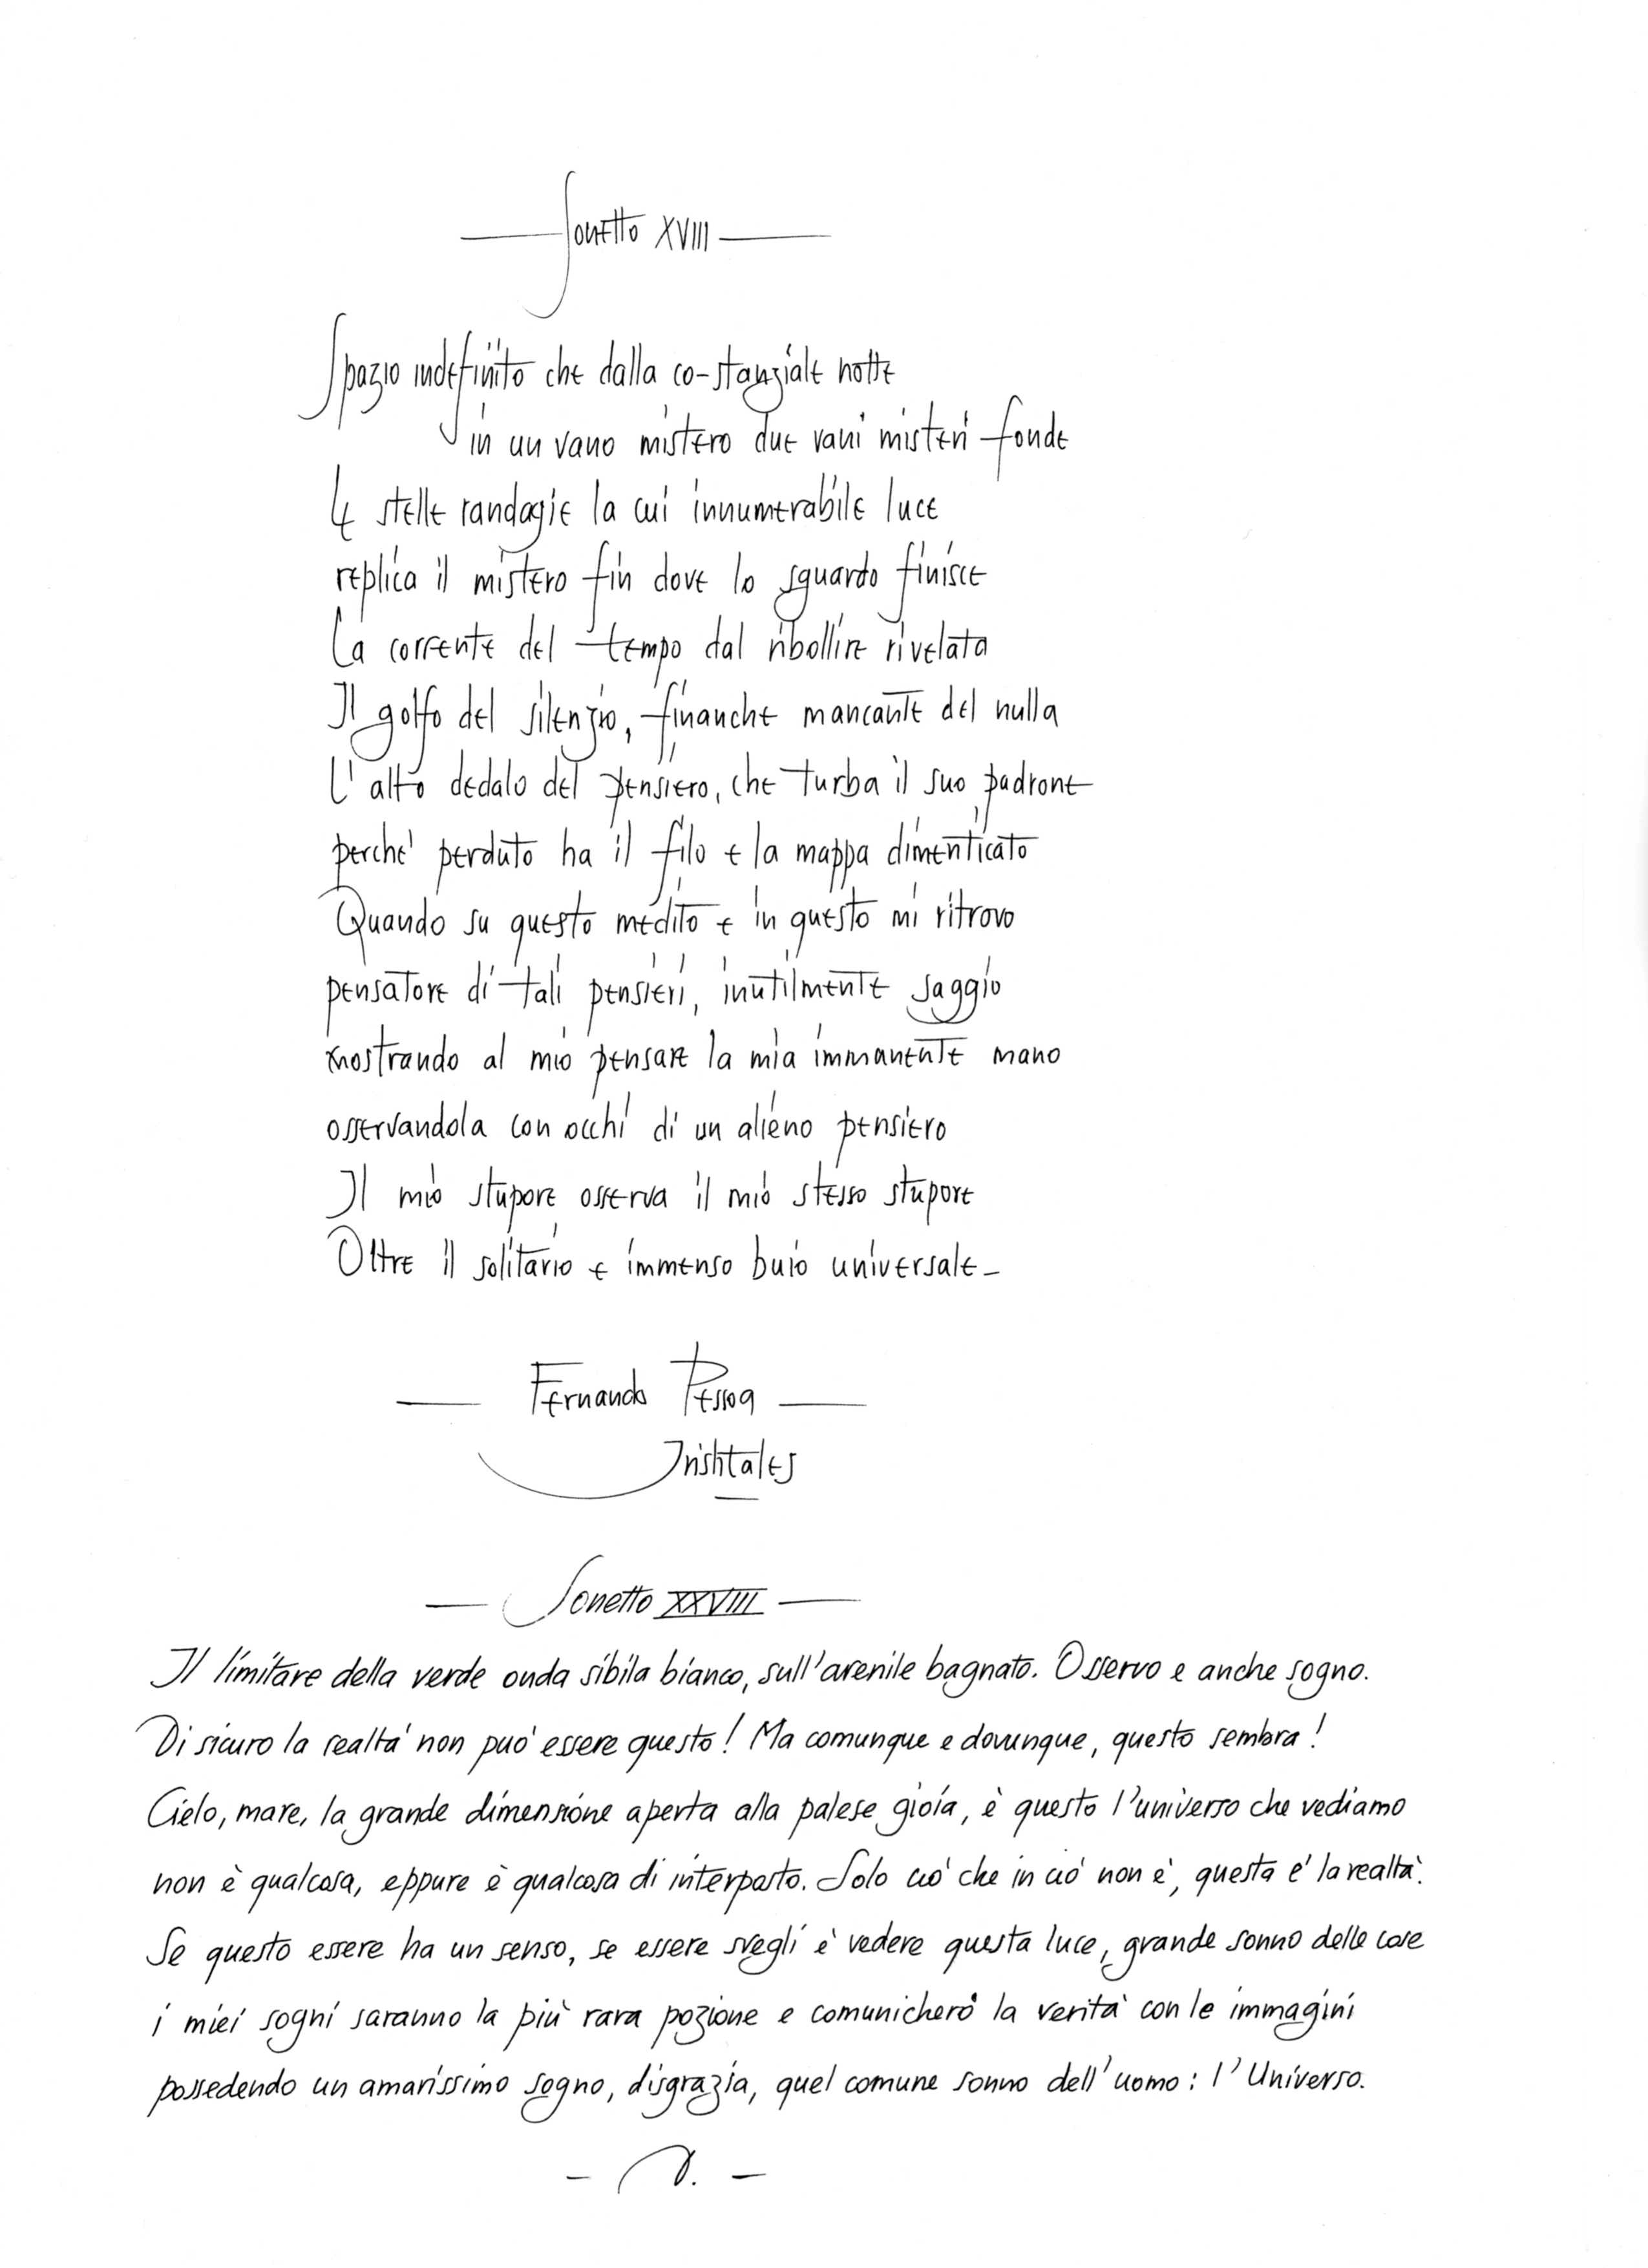 Sonetto XVIII
Spazio indefinito che dalla co-stanziale notte
in un vano mistero due vani misteri fonde
Le stelle randagie la cui innumerabile luce
replica il mistero fin dove lo sguardo finisce
La corrente del tempo dal ribollire rivelata
Il golfo del silenzio, financhè mancante del nulla
L'alto dedalo del pensiero, che turba il suo padrone
perche' perduto ha il filo e la mappa dimenticato
Quando su questo medito e in questo mi ritrovo
pensatore di tali pensieri, inutilmente saggio
mostrando al mio pensare la mia immanente mano
osservandola con occhi di un alieno pensiero
Il mio stupore osserva il mio stesso stupore
Oltre il solitario e immenso buio universale_
Fernando Pessoa
Irishtales
Sonetto XXVIII
Il limitare della verde onda sibila bianco, sull'arenile bagnato. Osservo e anche sogno.
Di sicuro la realta' non puo' essere questo! Ma comunque e dovunque, questo sembra!
Cielo, mare, la grande dimensione aperta alla palese gioia, è questo l'universo che vediamo
non è qualcosa, eppure è qualcosa di interposto. Solo cio' che in cio' non è, questa e' la realta'.
Se questo essere ha un senso, se essere svegli è vedere questa luce, grande sonno delle cose
i miei sogni saranno la più rara pozione e comunicherò la verità con le immagini
possedendo un amarissimo sogno, disgrazia, quel comune sonno dell'uomo: l'Universo.